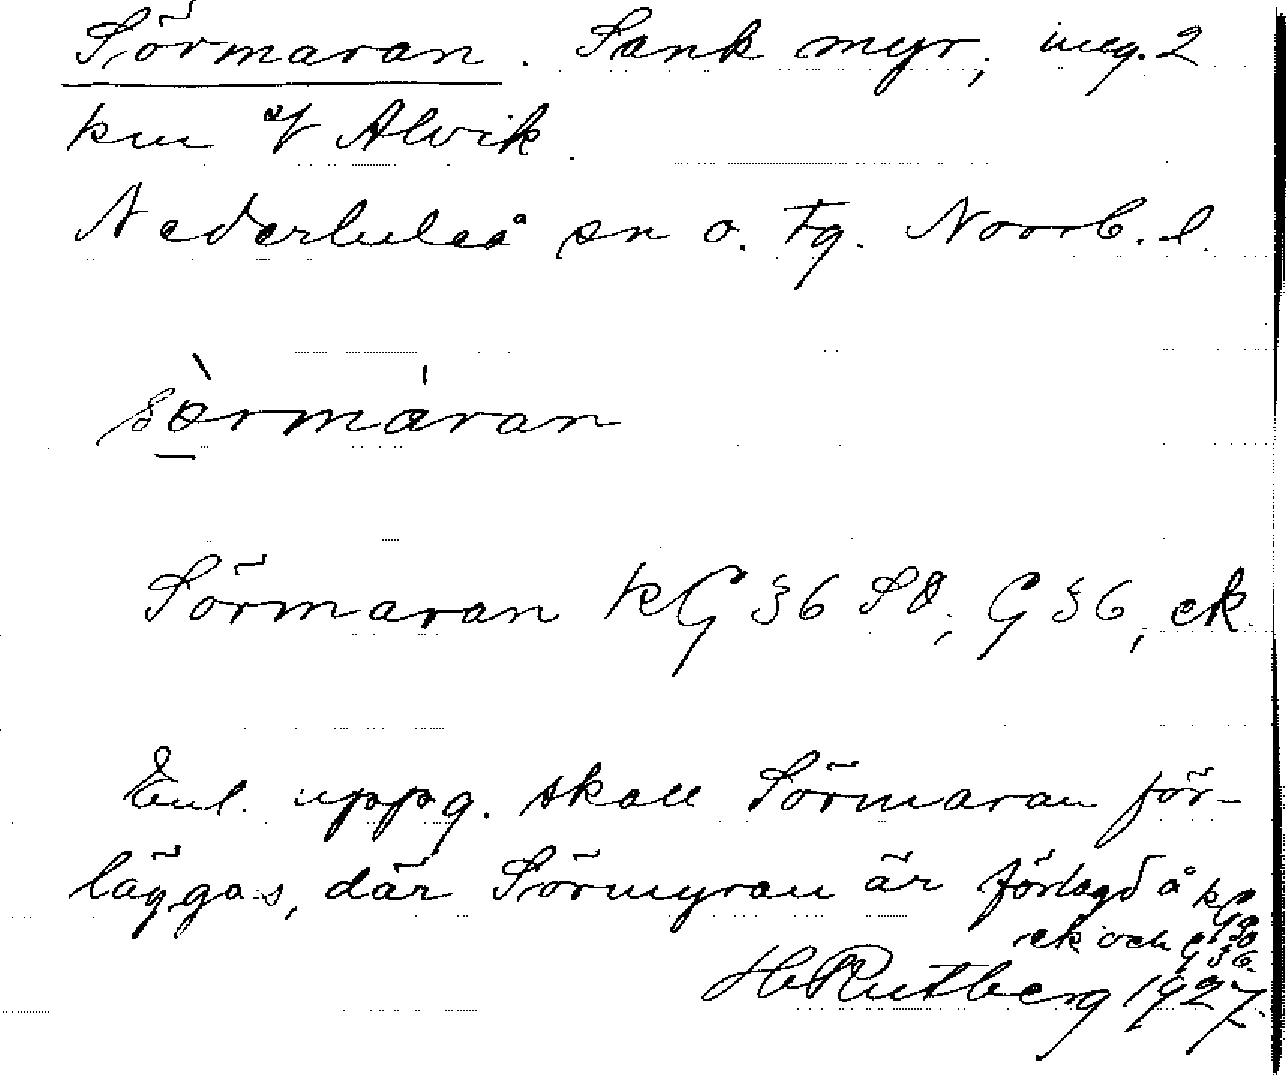 Sörmaran. Sank myr, ung. 2
km Alvik.
Nederluleå sn o. tg. Norrb. l.
sòrmáran
Sörmaran kG 36 SO, G 36, ek.
Enl. uppg. skall Sörmaran för-
läggas, där Sörmyran är förlagd å kG
ek och G 36.
H Rutberg 1927.